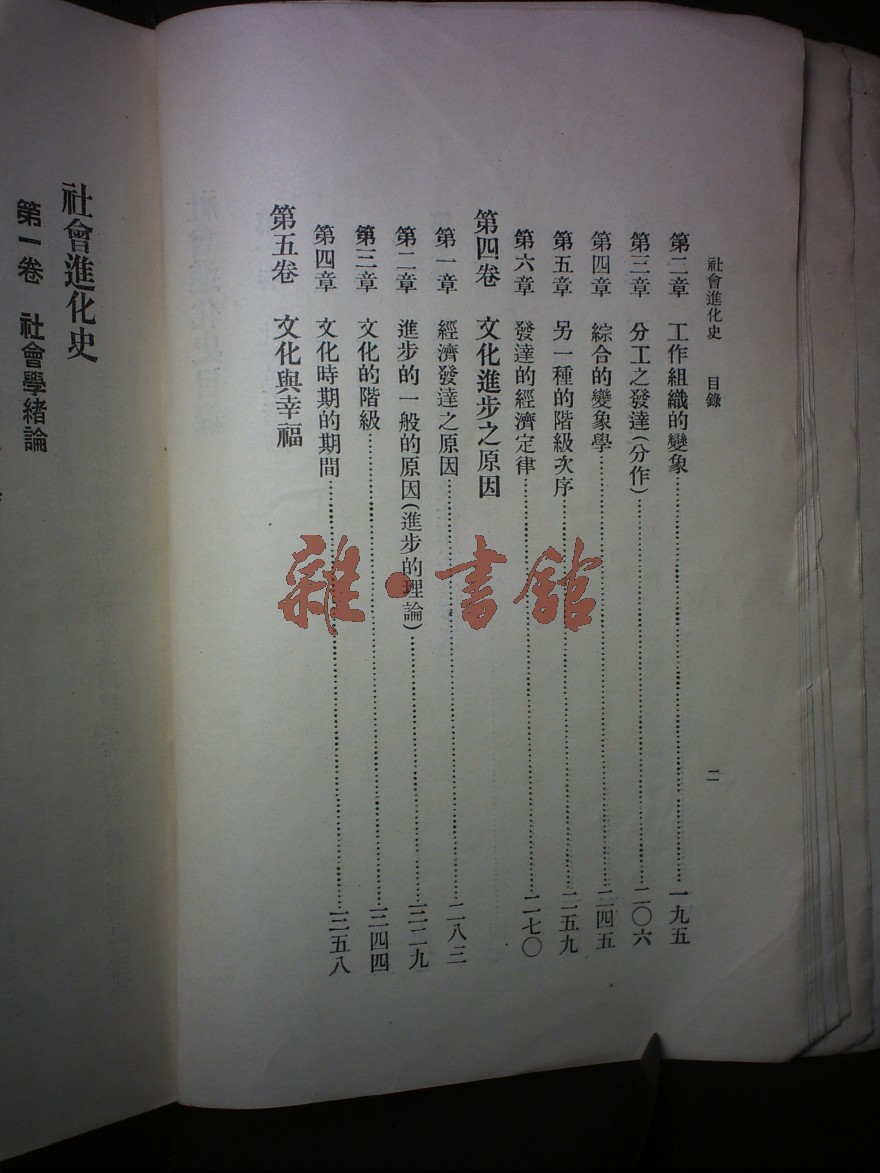 社會進化史 目錄 二
第二章 工作組織的變象………一九五
第三章 分工之發達(分作)………二〇六
第四章 綜合的變象學………二四五
第五章 另一種的階級次序………二五九
第六章 發達的經濟定律………二七〇
第四卷 文化進步之原因
第一章 經濟發達之原因………二八三
第二章 進步的一般的原因(進步的理論)………三二九
第三章 文化的階級………三四四
第四章 文化時期的期間………三五八
第五卷 文化與幸福
社會進化史
第一卷 社會學緒論
雜·書館